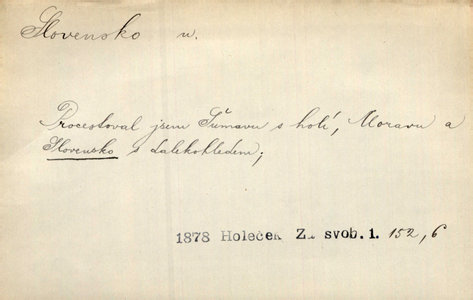 Slovensko n.
Procestoval jsem Šumavu s holí, Moravu a
Slovensko s dalekohledem;
1878 Holeček Za svob. 1. 152, 6